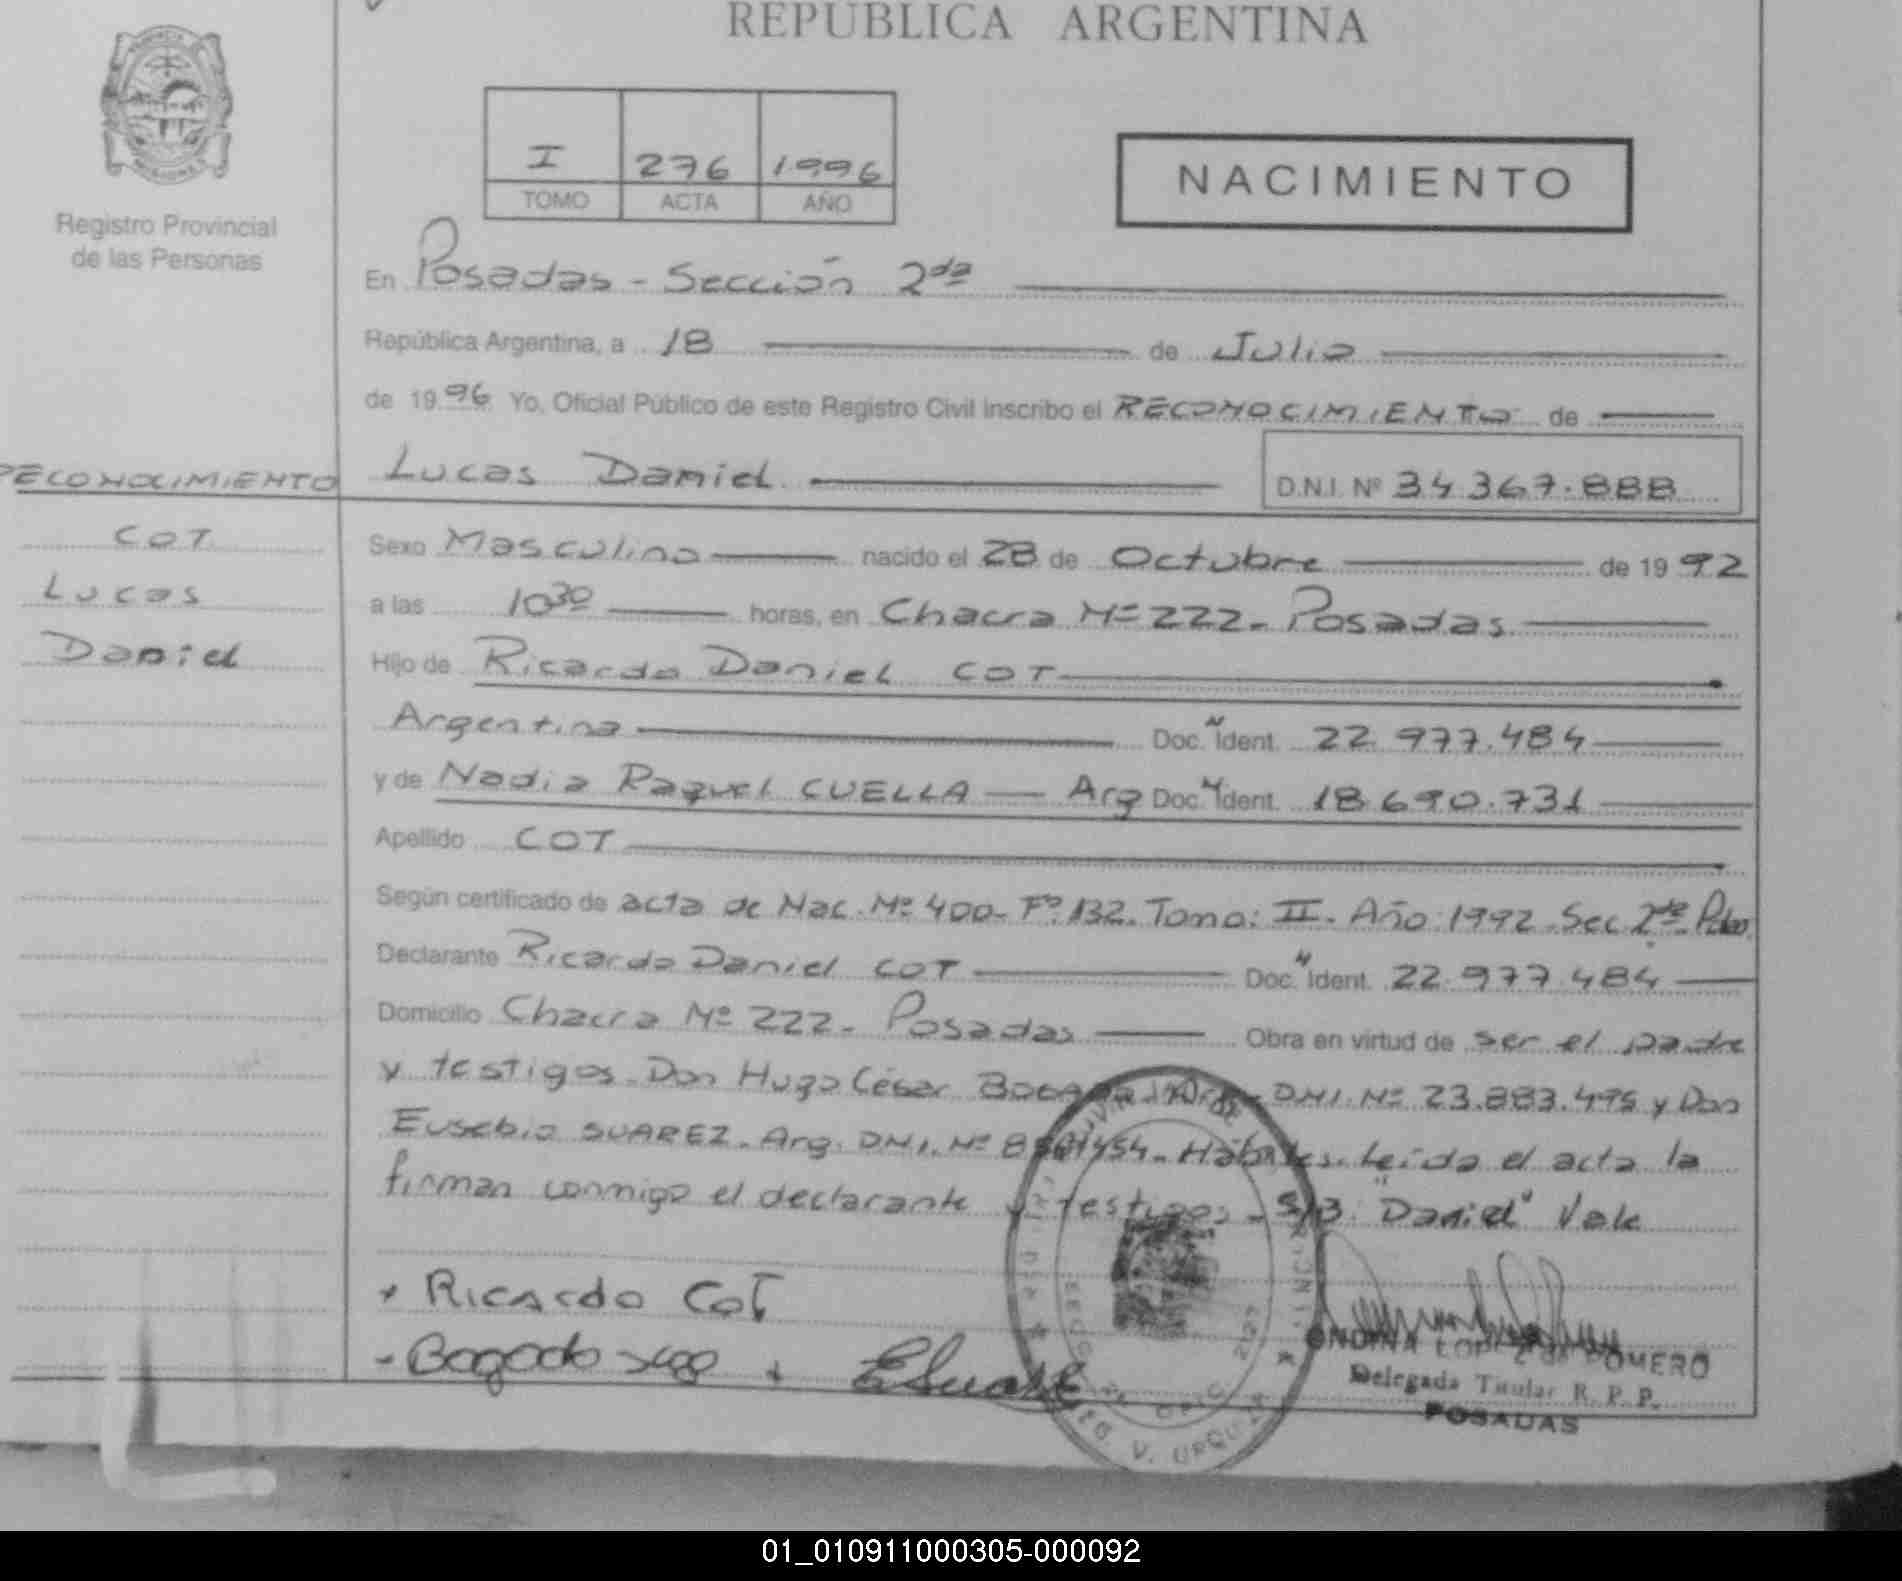 REPUBLICA ARGENTINA
I 276 1996
TOMO ACTA AÑO
NACIMIENTO
Registro Provincial
de las Personas
En Posadas - Sección 2da
República Argentina, a 18 de Julio
de 1996 Yo, Oficial Público de este Registro Civil inscribo el RECONOCIMIENTO de
Lucas Daniel D.N.I. Nº 34.367.888
RECONOCIMIENTO
COT
Lucas
Daniel
Sexo Masculino nacido el 28 de Octubre de 1992
a las 10 30 horas, en Chacra Nº 222- Posadas
Hijo de Ricardo Daniel COT
Argentina Doc. Ident. 22.977.484
y de Nadia Raquel CUELLA — Arg Doc. Ident. 18.690.731
Apellido COT
Según certificado de acta de Nac. Nº 400- Fº 132. Tomo: II. Año: 1992. Sec. 2da
Declarante Ricardo Daniel COT Doc. Ident. 22.977.484
Domicilio Chacra Nº 222- Posadas Obra en virtud de ser el padre
y testigos Don Hugo César DNI. Nº 23.883.495 y Don
Eusebio SUAREZ. Arg. DNI. Nº Hábiles. Leída el acta la
firman conmigo el declarante y testigos - S/B "Daniel" Vale
Ricardo Cot
ONDINA LOPEZ de ROMERO
Delegada Titular R. P. P.
POSADAS
V. URQUIZA
01_010911000305-000092